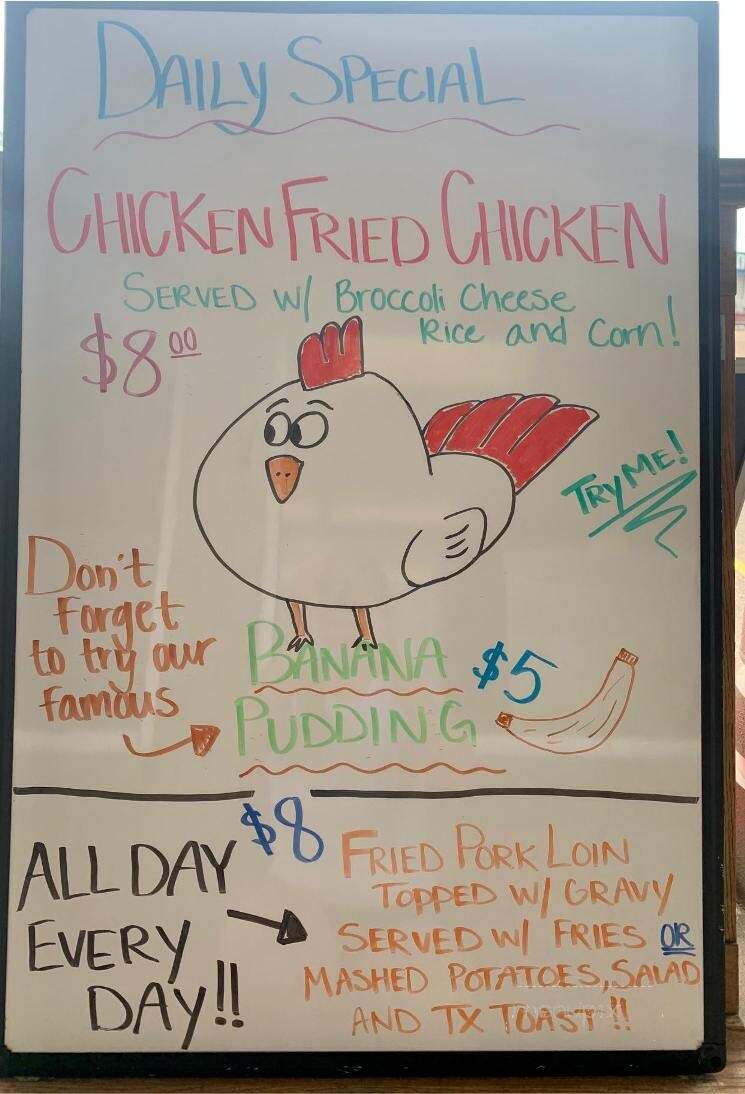 DAILY SPECIAL
CHICKEN FRIED CHICKEN
SERVED W/ Broccoli Cheese
Rice and Corn!
$8.00
TRY ME!
Don't
Forget
to try our
famous
BANANA
PUDDING
$5
$8
ALL DAY
EVERY
DAY!!
FRIED PORK LOIN
TOPPED W/ GRAVY
SERVED W/ FRIES OR
MASHED POTATOES, SALAD
AND TX TOAST!!